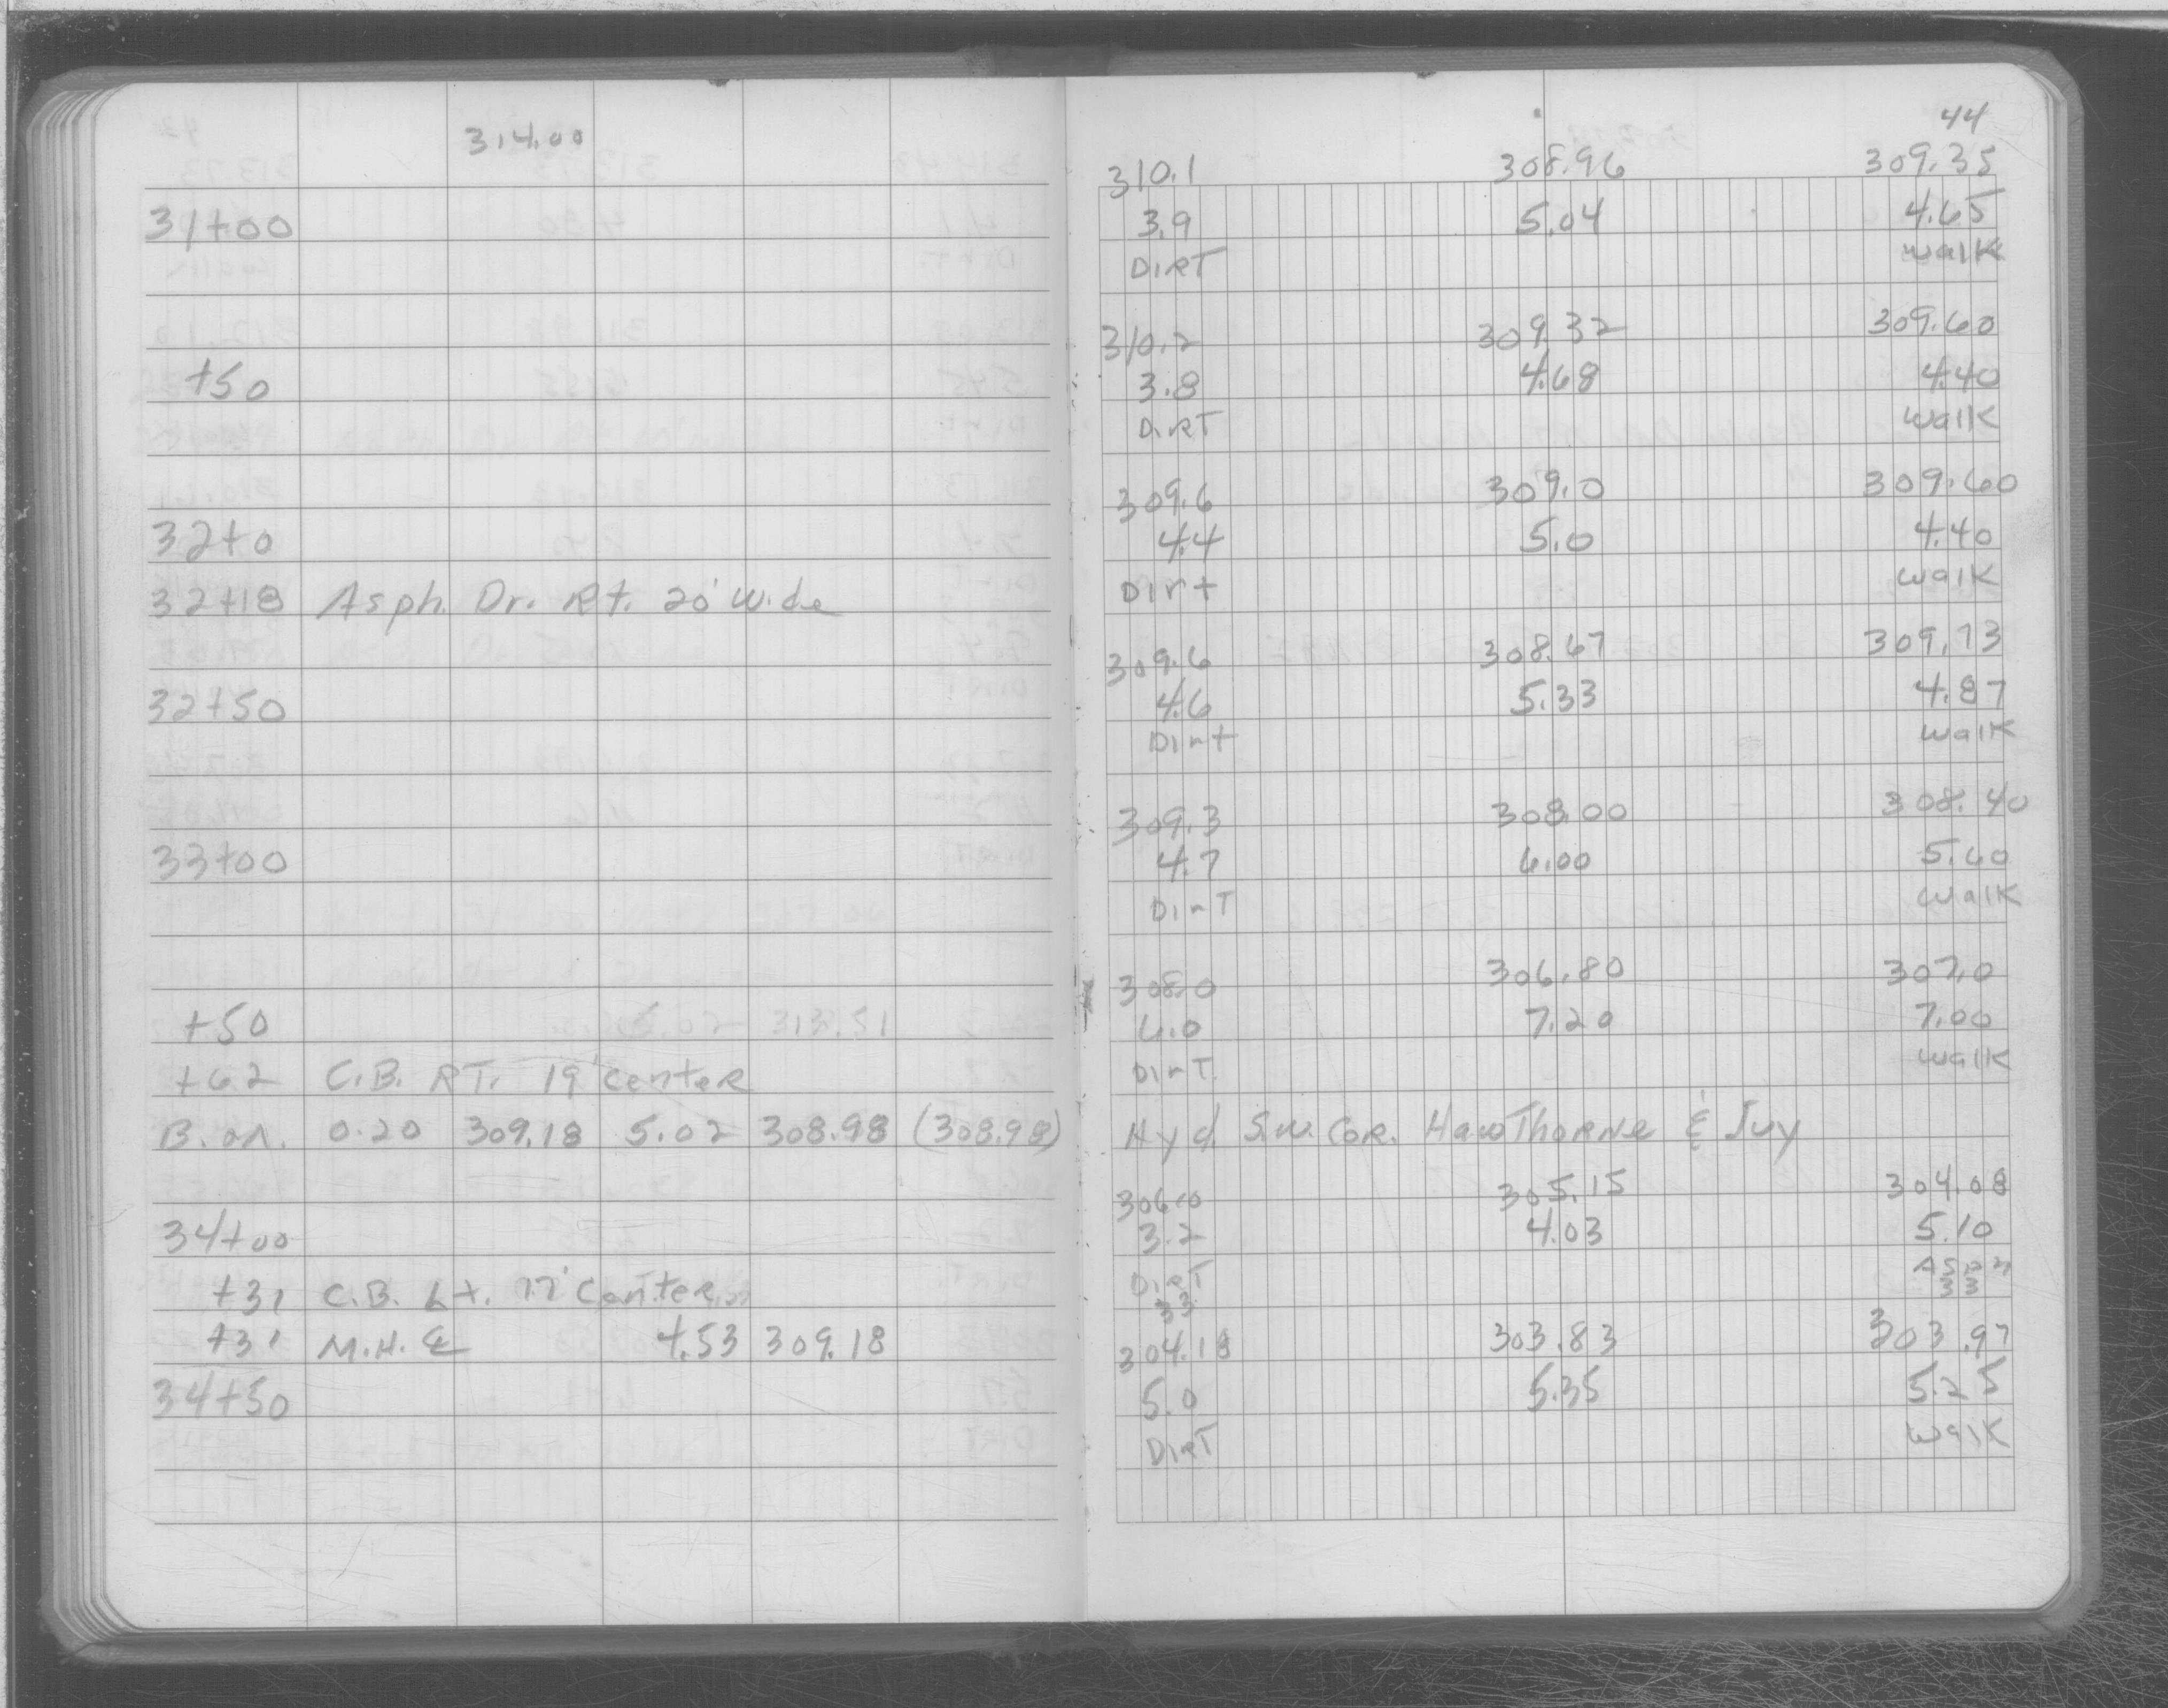 314.00
31+00
+50
32+0
32+18 Asph. Dr. Rt. 20' Wide
32+50
33+00
+50 5.02 313.51
+62 C.B. RT. 19' Center
B. on. 0.20 309.18 5.02 308.98 (308.98)
34+00
+31 C.B. Lt. 17' Center
+31 M.H. ℄ 4.53 309.18
34+50
44
310.1 308.96 309.35
3.9 5.04 4.65
DIRT walk
310.2 309.32 309.60
3.8 4.68 4.40
DIRT walk
309.6 309.0 309.60
4.4 5.0 4.40
Dirt walk
309.6 308.67 309.13
4.6 5.33 4.87
Dirt walk
309.3 308.00 308.40
4.7 6.00 5.60
DirT walk
308.0 306.80 307.0
6.0 7.20 7.00
DirT walk
Hyd S.W. Cor. HawThorne & Ivy
306.0 305.15 304.08
3.2 4.03 5.10
DirT Asph
33 33
304.18 303.83 303.97
5.0 5.35 5.25
DIRT walk